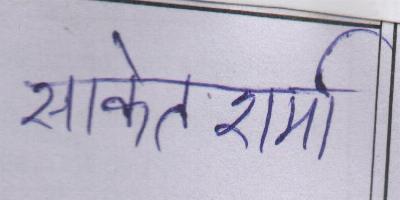 साकेत शर्मा